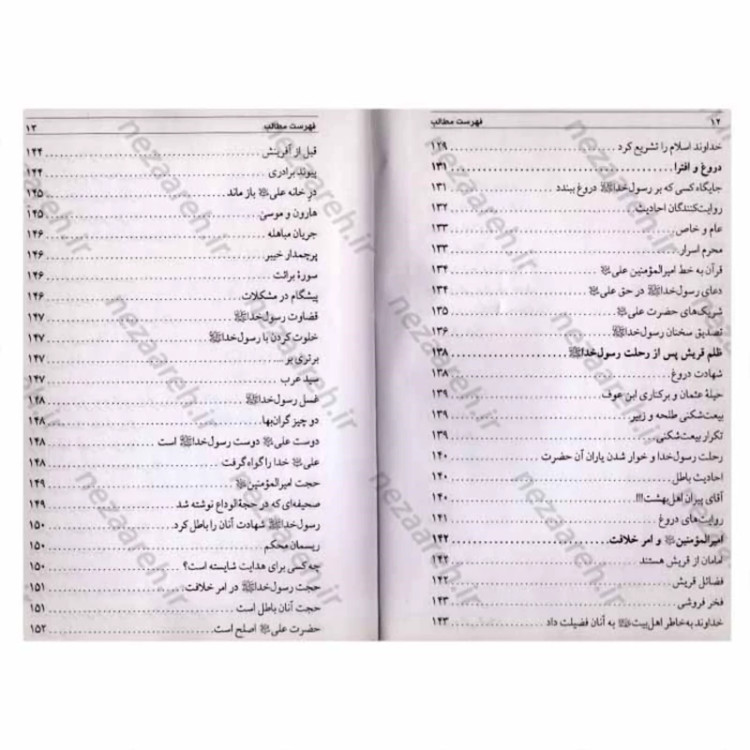 ۱۲ فهرست مطالب
خداوند اسلام را تشریع کرد ۱۲۹
دروغ و افترا ۱۳۱
جایگاه کسی که بر رسول‌خداﷺ دروغ ببندد ۱۳۱
روایت‌کنندگان احادیث ۱۳۲
عام و خاص ۱۳۳
محرم اسرار ۱۳۳
قرآن به خط امیرالمؤمنین علی ۱۳۴
دعای رسول‌خداﷺ در حق علی ۱۳۴
شریک‌های حضرت علی ۱۳۵
تصدیق سخنان رسول‌خداﷺ ۱۳۶
ظلم قریش پس از رحلت رسول‌خداﷺ ۱۳۸
شهادت دروغ ۱۳۸
حیلهٔ عثمان و برکناری ابن عوف ۱۳۹
بیعت‌شکنی طلحه و زبیر ۱۳۹
تکرار بیعت‌شکنی ۱۳۹
رحلت رسول‌خدا و خوار شدن یاران آن حضرت ۱۴۰
احادیث باطل ۱۴۰
آقای پیران اهل‌بهشت!!! ۱۴۰
روایت‌های دروغ ۱۴۱
امیرالمؤمنین و امر خلافت ۱۴۲
امامان از قریش هستند ۱۴۲
فضائل قریش ۱۴۲
فخر فروشی ۱۴۳
خداوند به‌خاطر اهل‌بیت به آنان فضیلت داد ۱۴۳
فهرست مطالب ۱۳
قبل از آفرینش ۱۴۴
پیوند برادری ۱۴۴
درِ خانه علی باز ماند ۱۴۵
هارون و موسیٰ ۱۴۵
جریان مباهله ۱۴۶
پرچمدار خیبر ۱۴۶
سورهٔ برائت ۱۴۶
پیشگام در مشکلات ۱۴۶
قضاوت رسول‌خداﷺ ۱۴۷
خلوت کردن با رسول‌خداﷺ ۱۴۷
برتری بر ۱۴۷
سید عرب ۱۴۷
غسل رسول‌خداﷺ ۱۴۸
دو چیز گران‌بها ۱۴۸
دوست علی دوست رسول‌خداﷺ است ۱۴۸
علی خدا را گواه گرفت ۱۴۸
حجت امیرالمؤمنین ۱۴۹
صحیفه‌ای که در حجةالوداع نوشته شد ۱۴۹
رسول‌خداﷺ شهادت آنان را باطل کرد ۱۵۰
ریسمان محکم ۱۵۰
چه‌کسی برای هدایت شایسته است؟ ۱۵۰
حجت رسول‌خداﷺ در امر خلافت ۱۵۱
حجت آنان باطل است ۱۵۱
حضرت علی اصلح است ۱۵۲
nezaareh.ir
nezaareh.ir
nezaareh.ir
nezaareh.ir
nezaareh.ir
nezaareh.ir